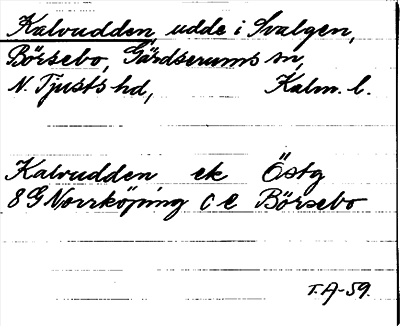 Kalvudden, udde i Svalgen,
Börsebo, Gärdserums sn,
N. Tjusts hd, Kalm. l.
Kalvudden ek Östg
8 G Norrköping c e Börsebo
T.A-59.